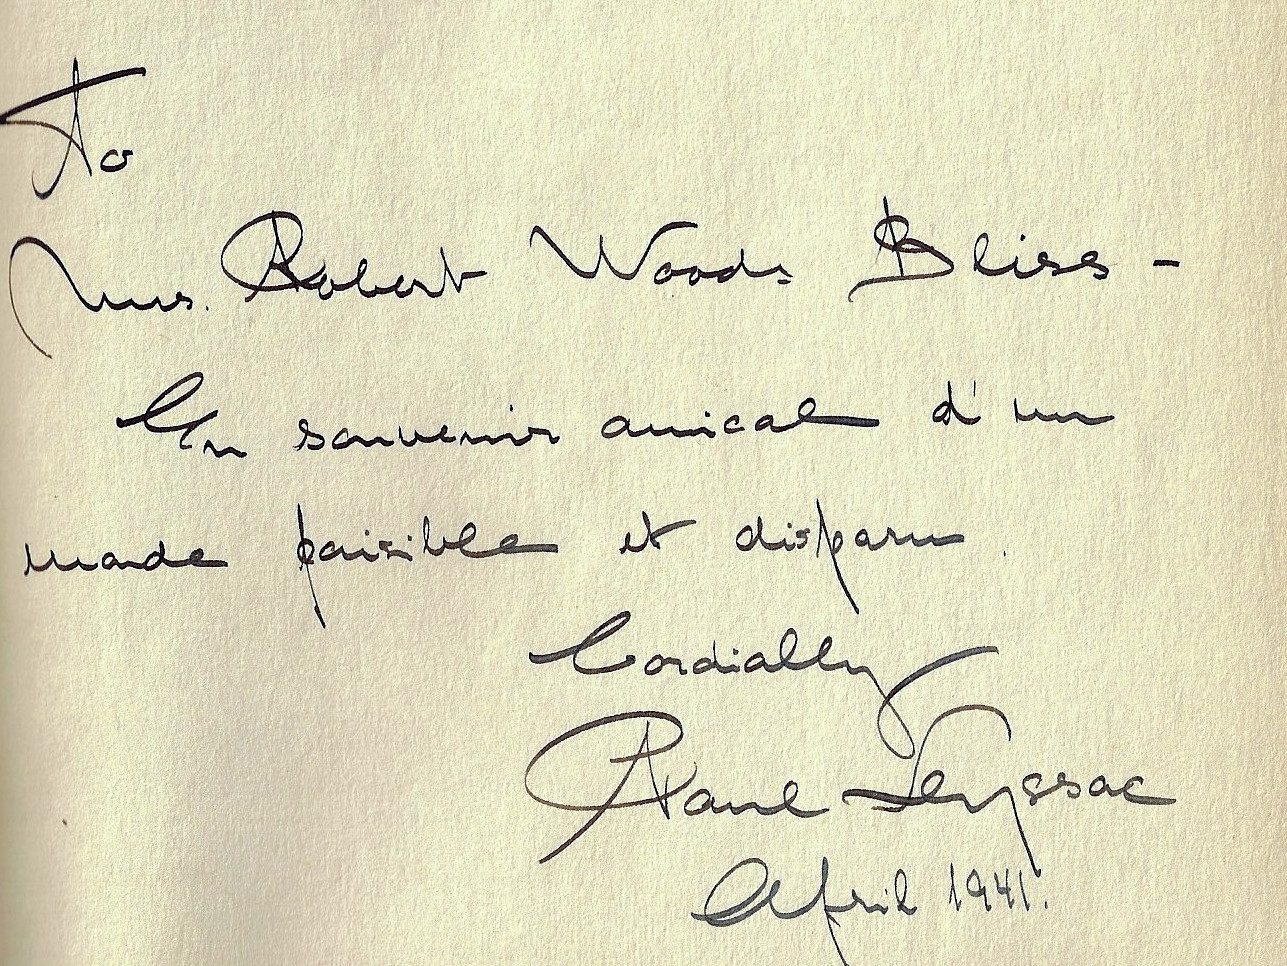 To
Mrs. Robert Woods Bliss -
En souvenir amical d'un
monde paisible et disparu.
Cordially
Paul Leyssac
April 1941.